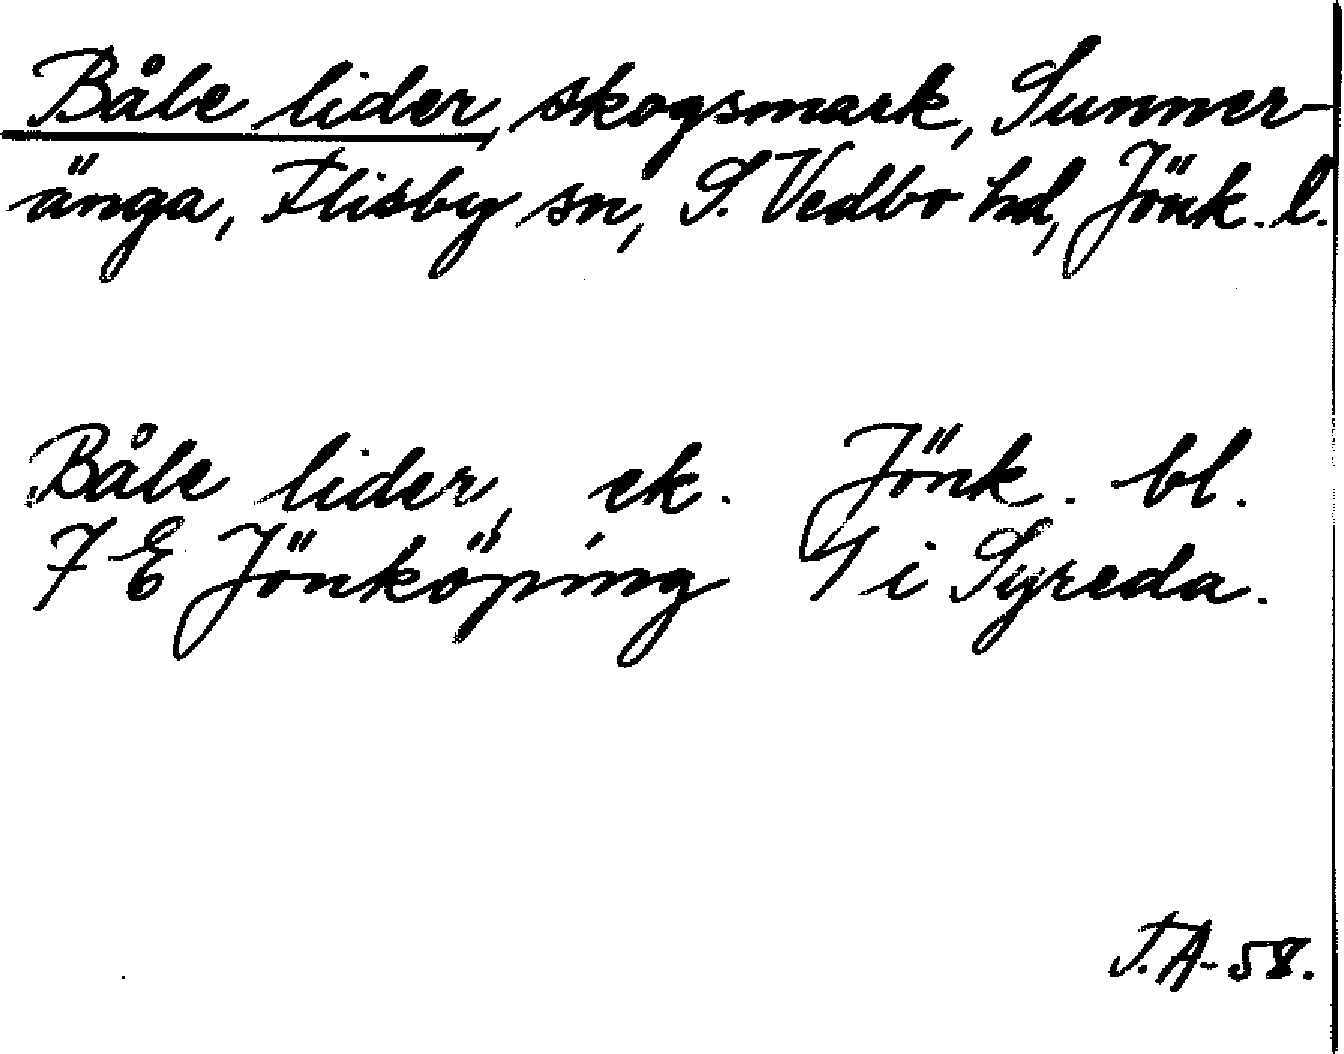 Båle lider, skogsmark, Sunner-
änga, Flisby sn, S. Vedbo hd, Jönk. l.
Båle lider, ek. Jönk. bl.
7 E Jönköping 9 i Syreda.
T.A-58.